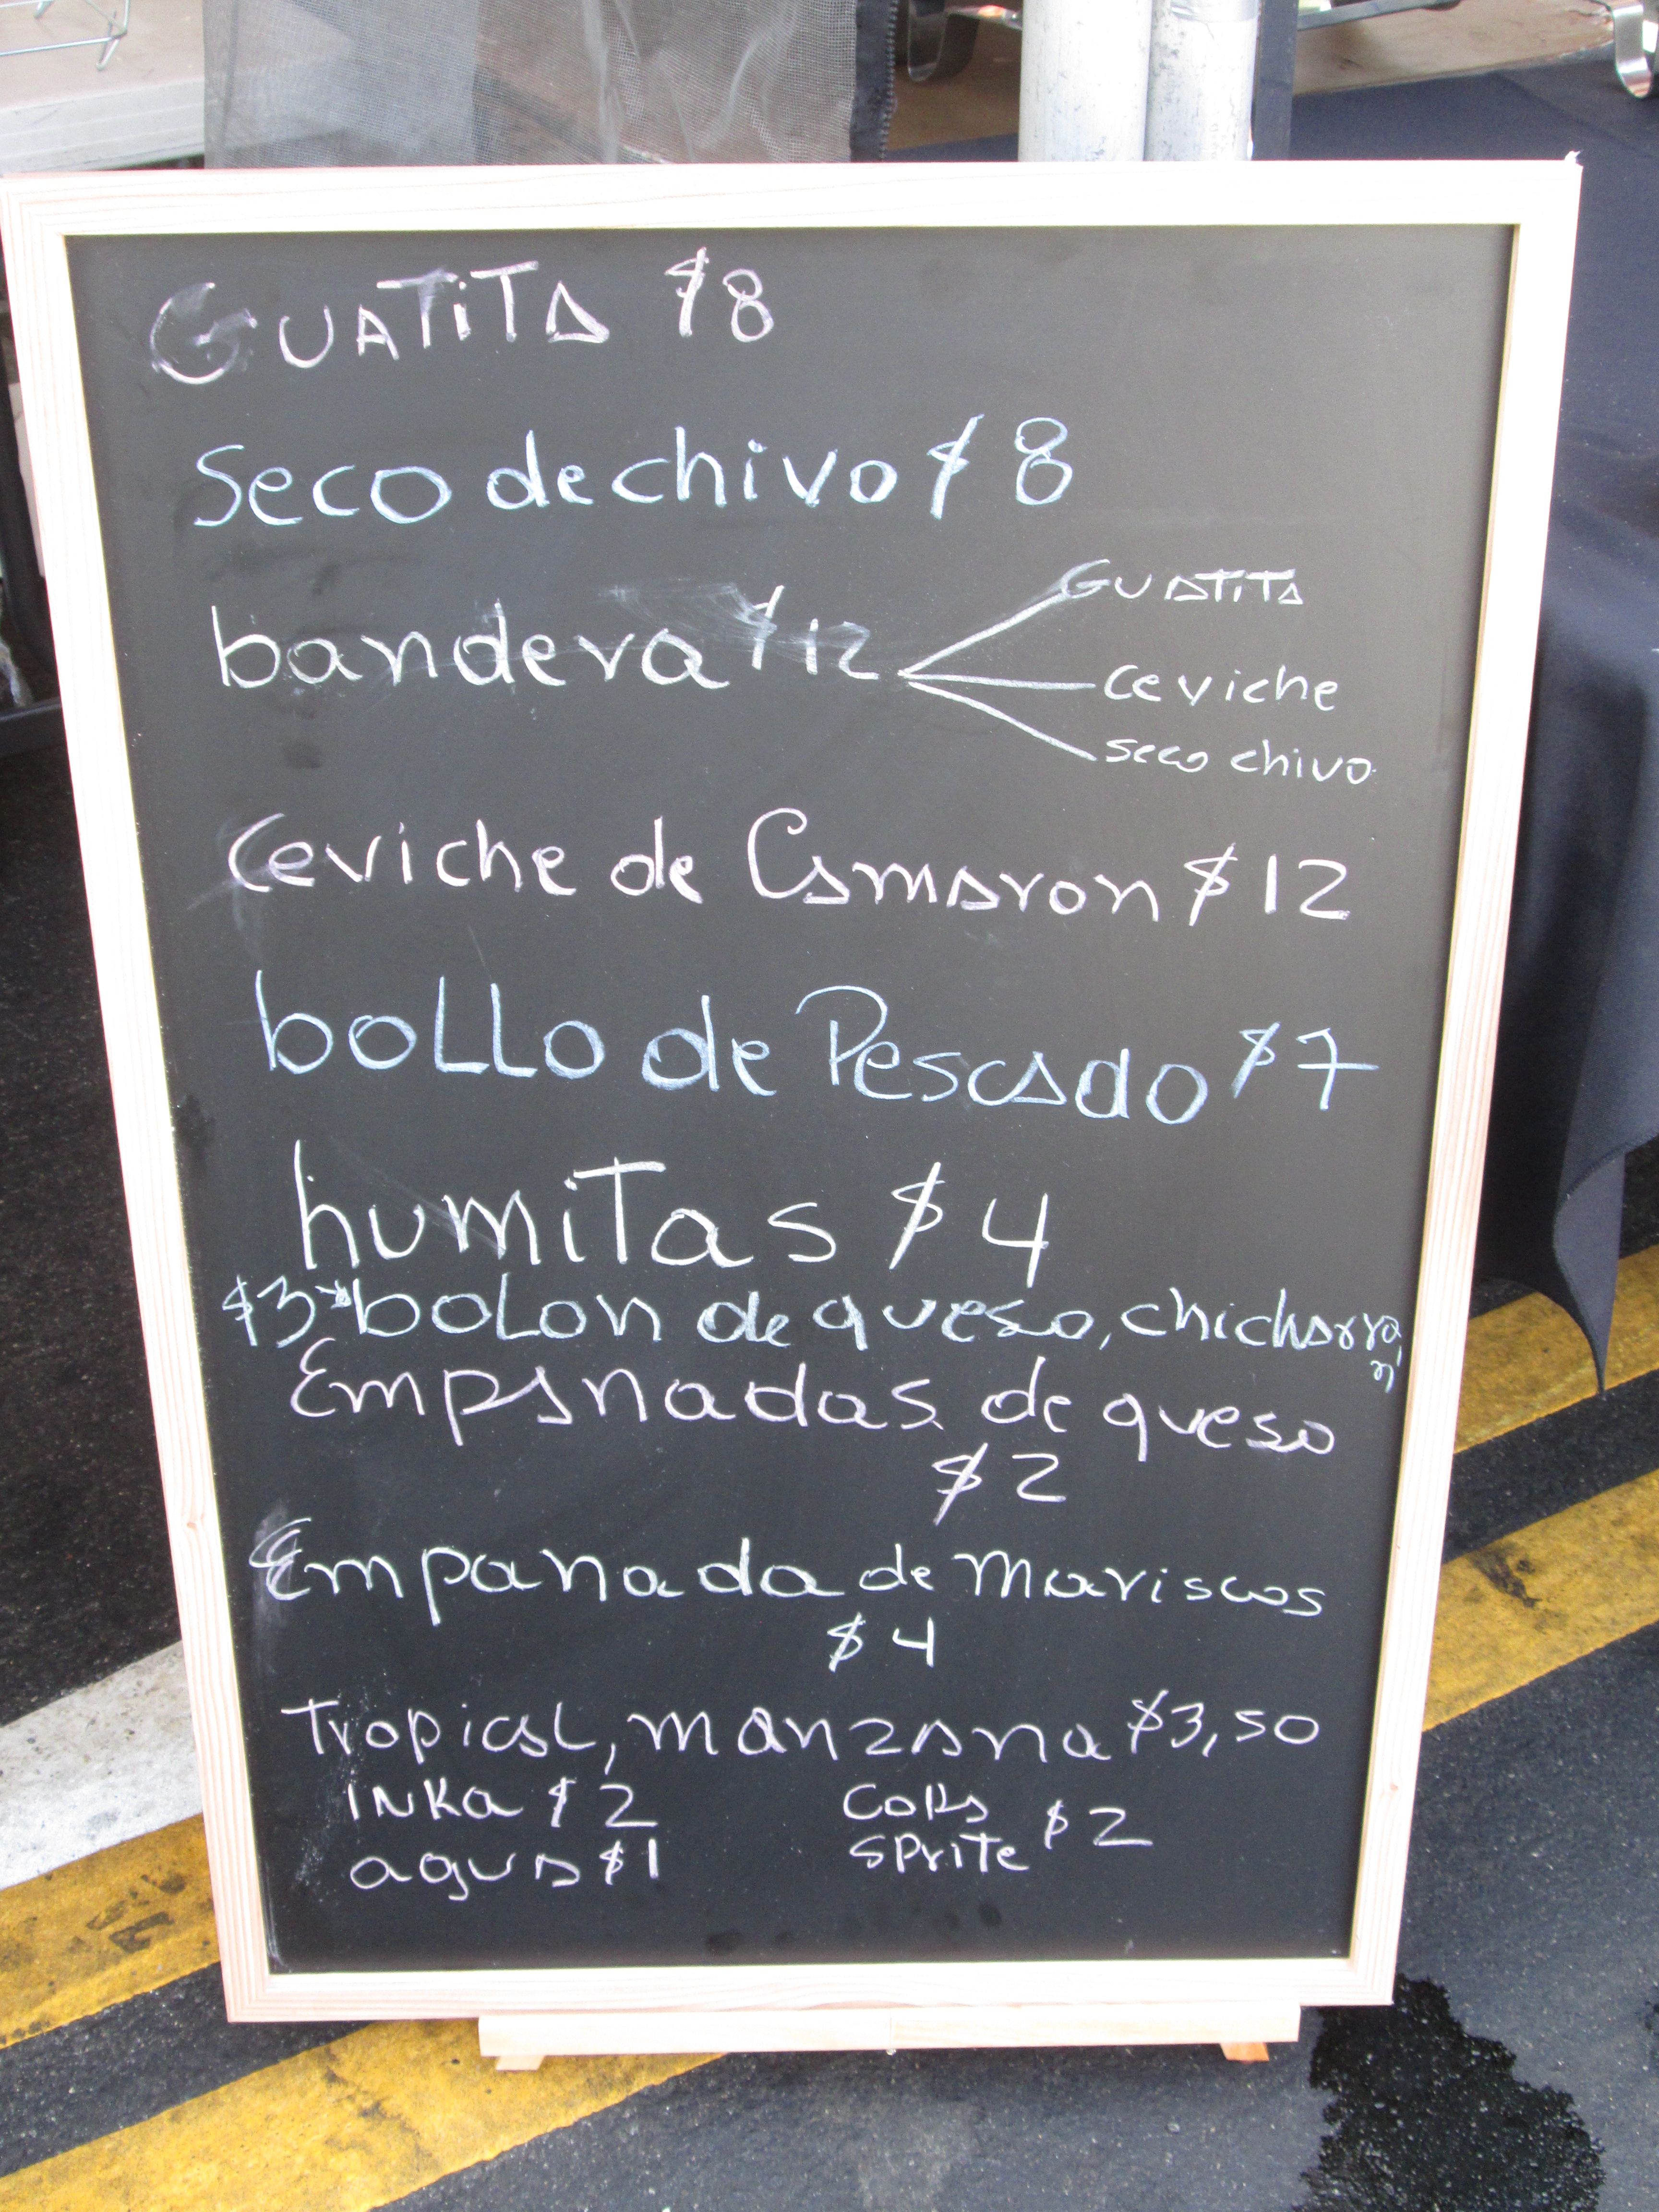 GUATITA $8
Seco de chivo $8
bandera $12
GUATITA
ceviche
seco chivo
Ceviche de Camaron $12
bollo de Pescado $7
humitas $4
$3 bolon de queso, chicharron
Empanadas de queso
$2
Empanada de Mariscos
$4
Tropical, manzana $3,50
INKa $2
Cola
Sprite $2
agua $1